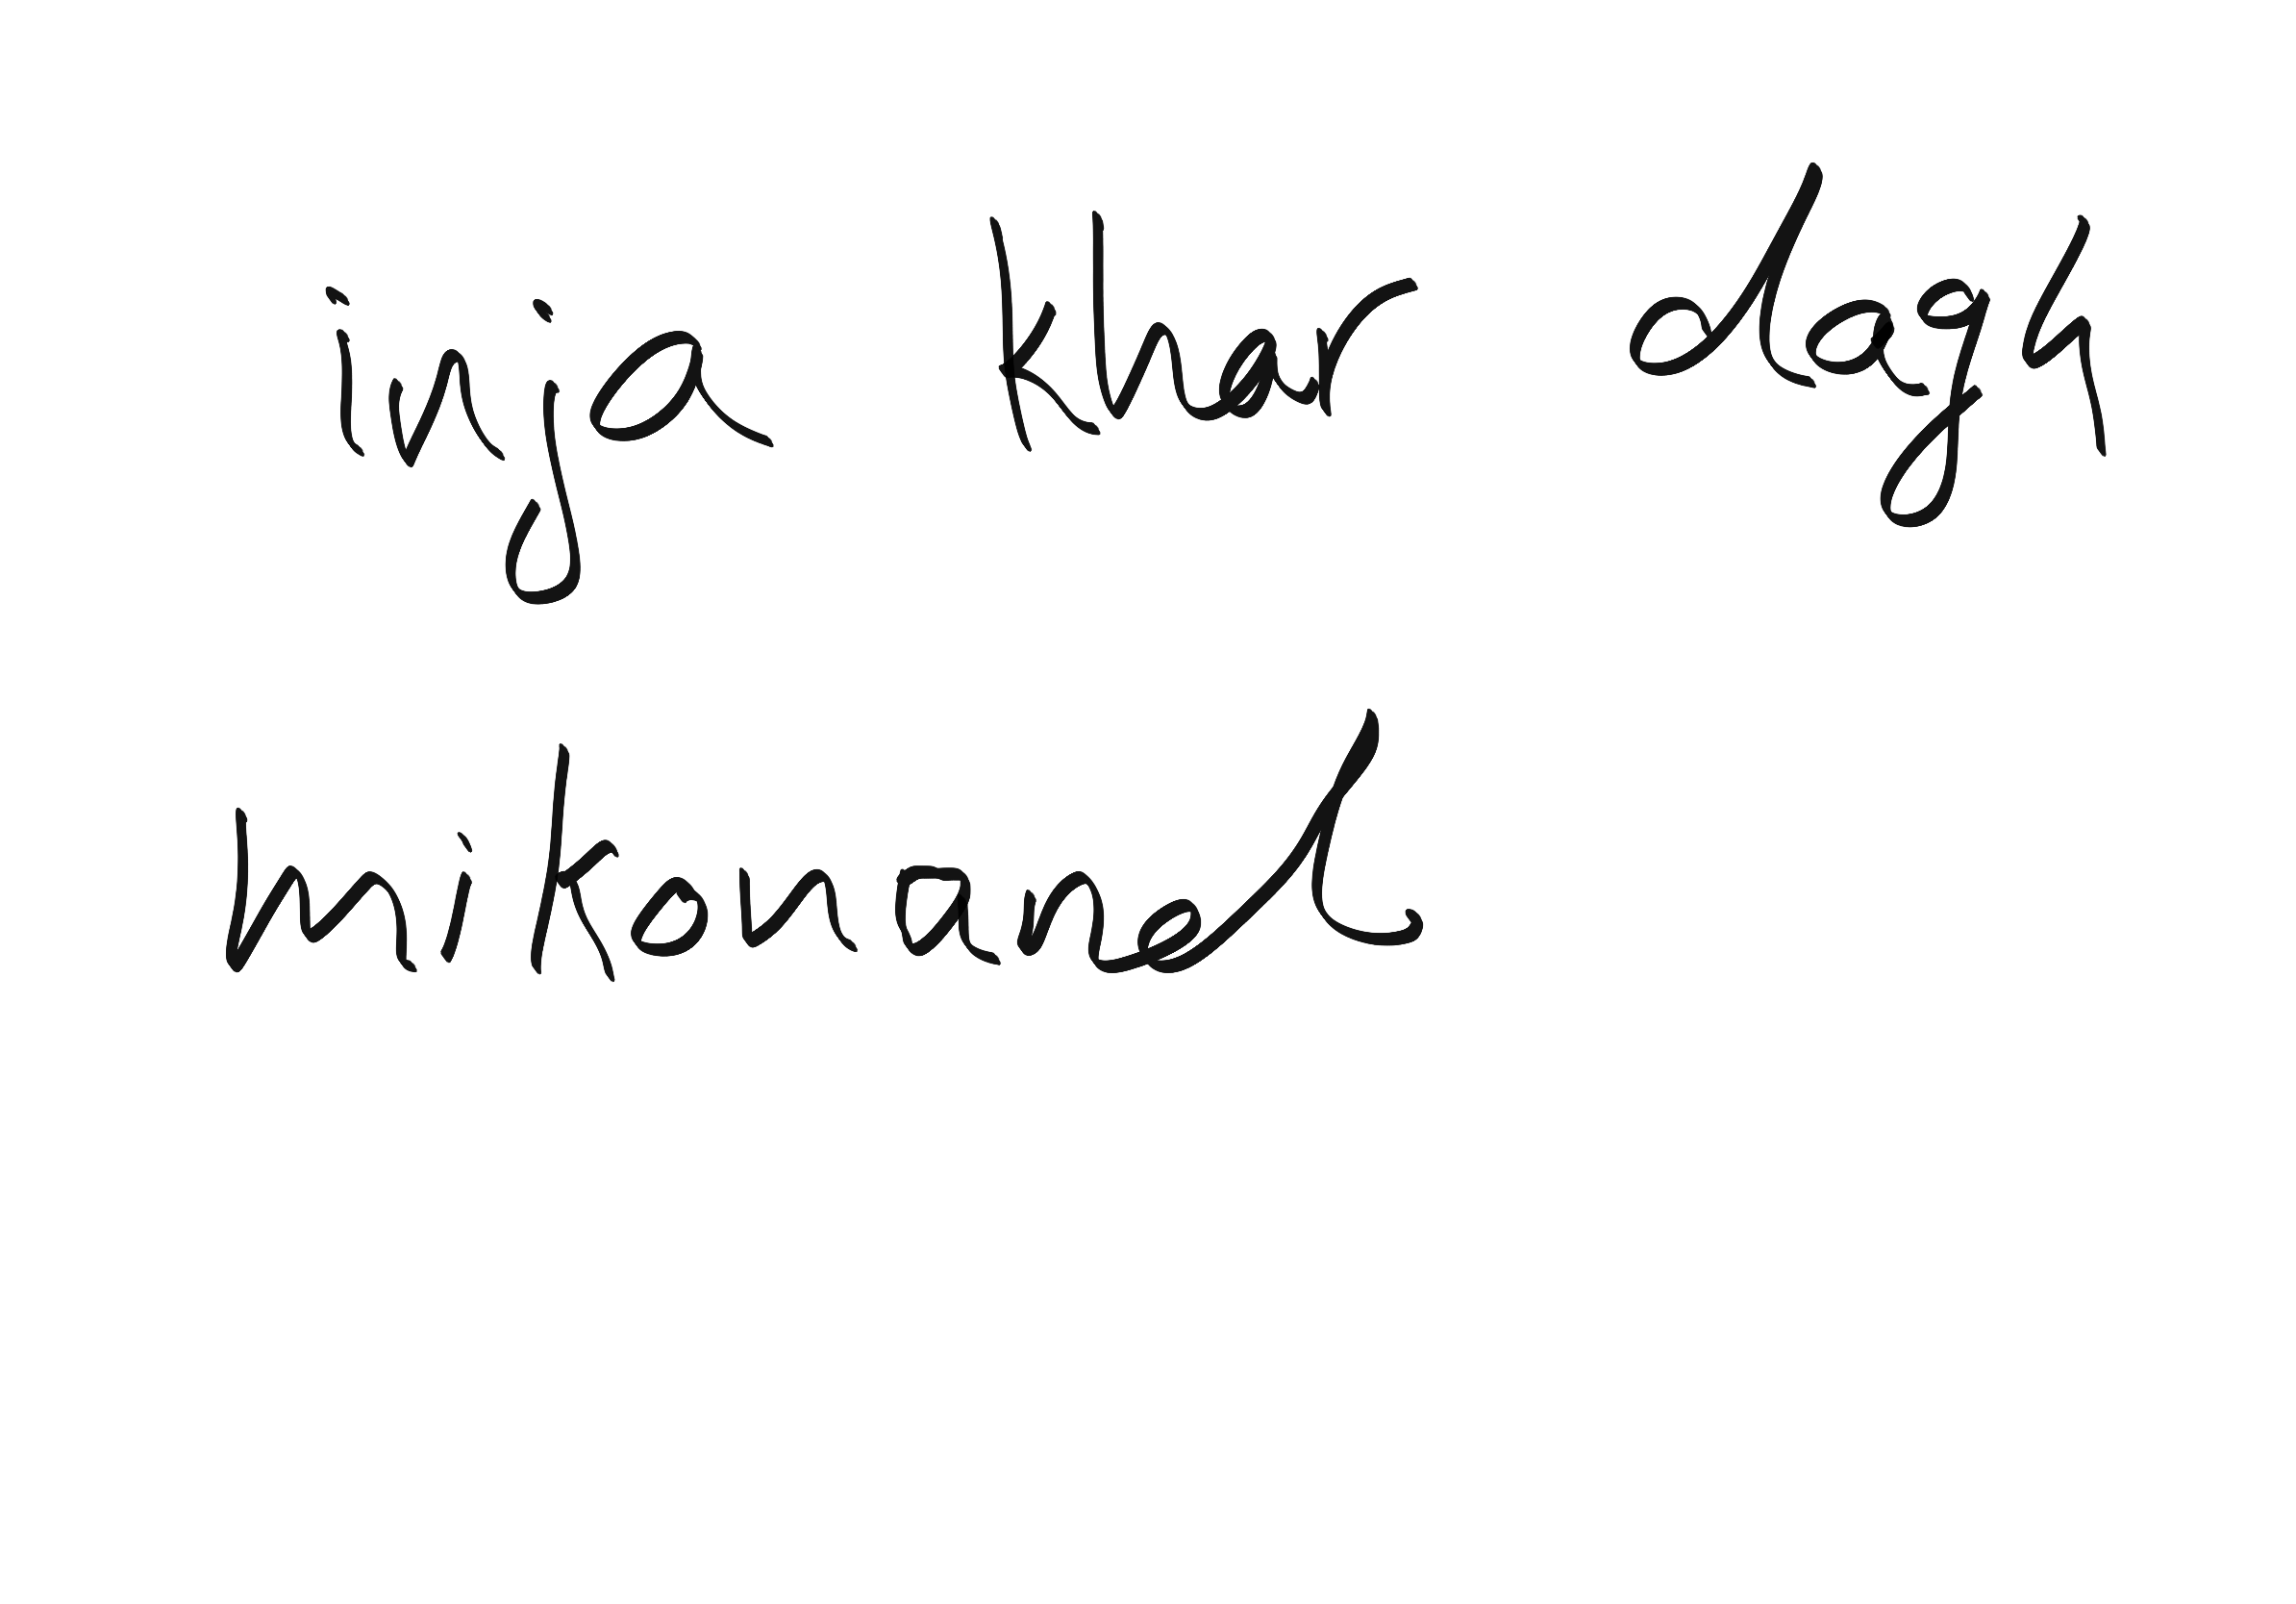 inja khar dagh
mikonand